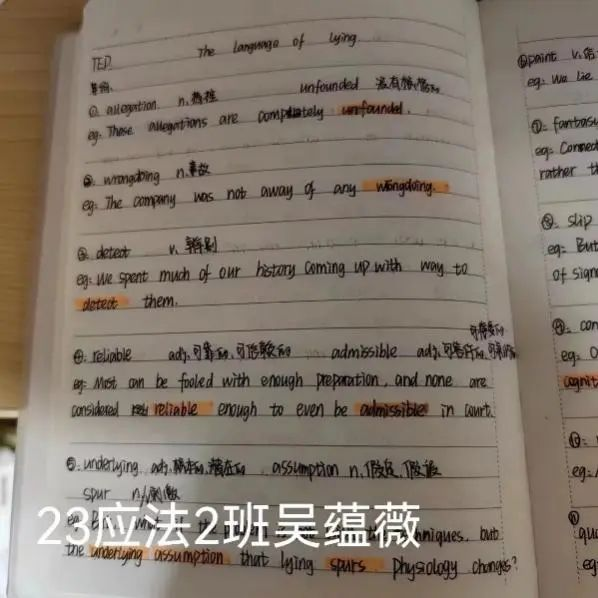 TED. The language of lying
单词:
①. allegation n. 指控 unfounded 没有依据的
eg: Those allegations are completely unfounded.
②. wrongdoing n. 事故
eg: The company was not away of any wrongdoing.
③. detect v. 辨别
eg: We spent much of our history coming up with way to
detect them.
可接受的
④. reliable adj. 可靠的、可信赖的 admissible adj. 可容许的、可采纳的
eg: Most can be fooled with enough preparation, and none are
considered reliable enough to even be admissible in court.
⑤. underlying adj. 潜在的 assumption n. 假定、假设
spur n./v. 刺激
eg: techniques, but
the underlying assumption that lying spurs physiology changes?
23应法2班吴蕴薇
⑥paint v.
eg: We lie
⑦. fantasy
eg: Connect
rather th
⑧. slip
eg: But
of sign
⑨. con
eg: O
cognit
⑩.
eg:
⑪ qua
eg: